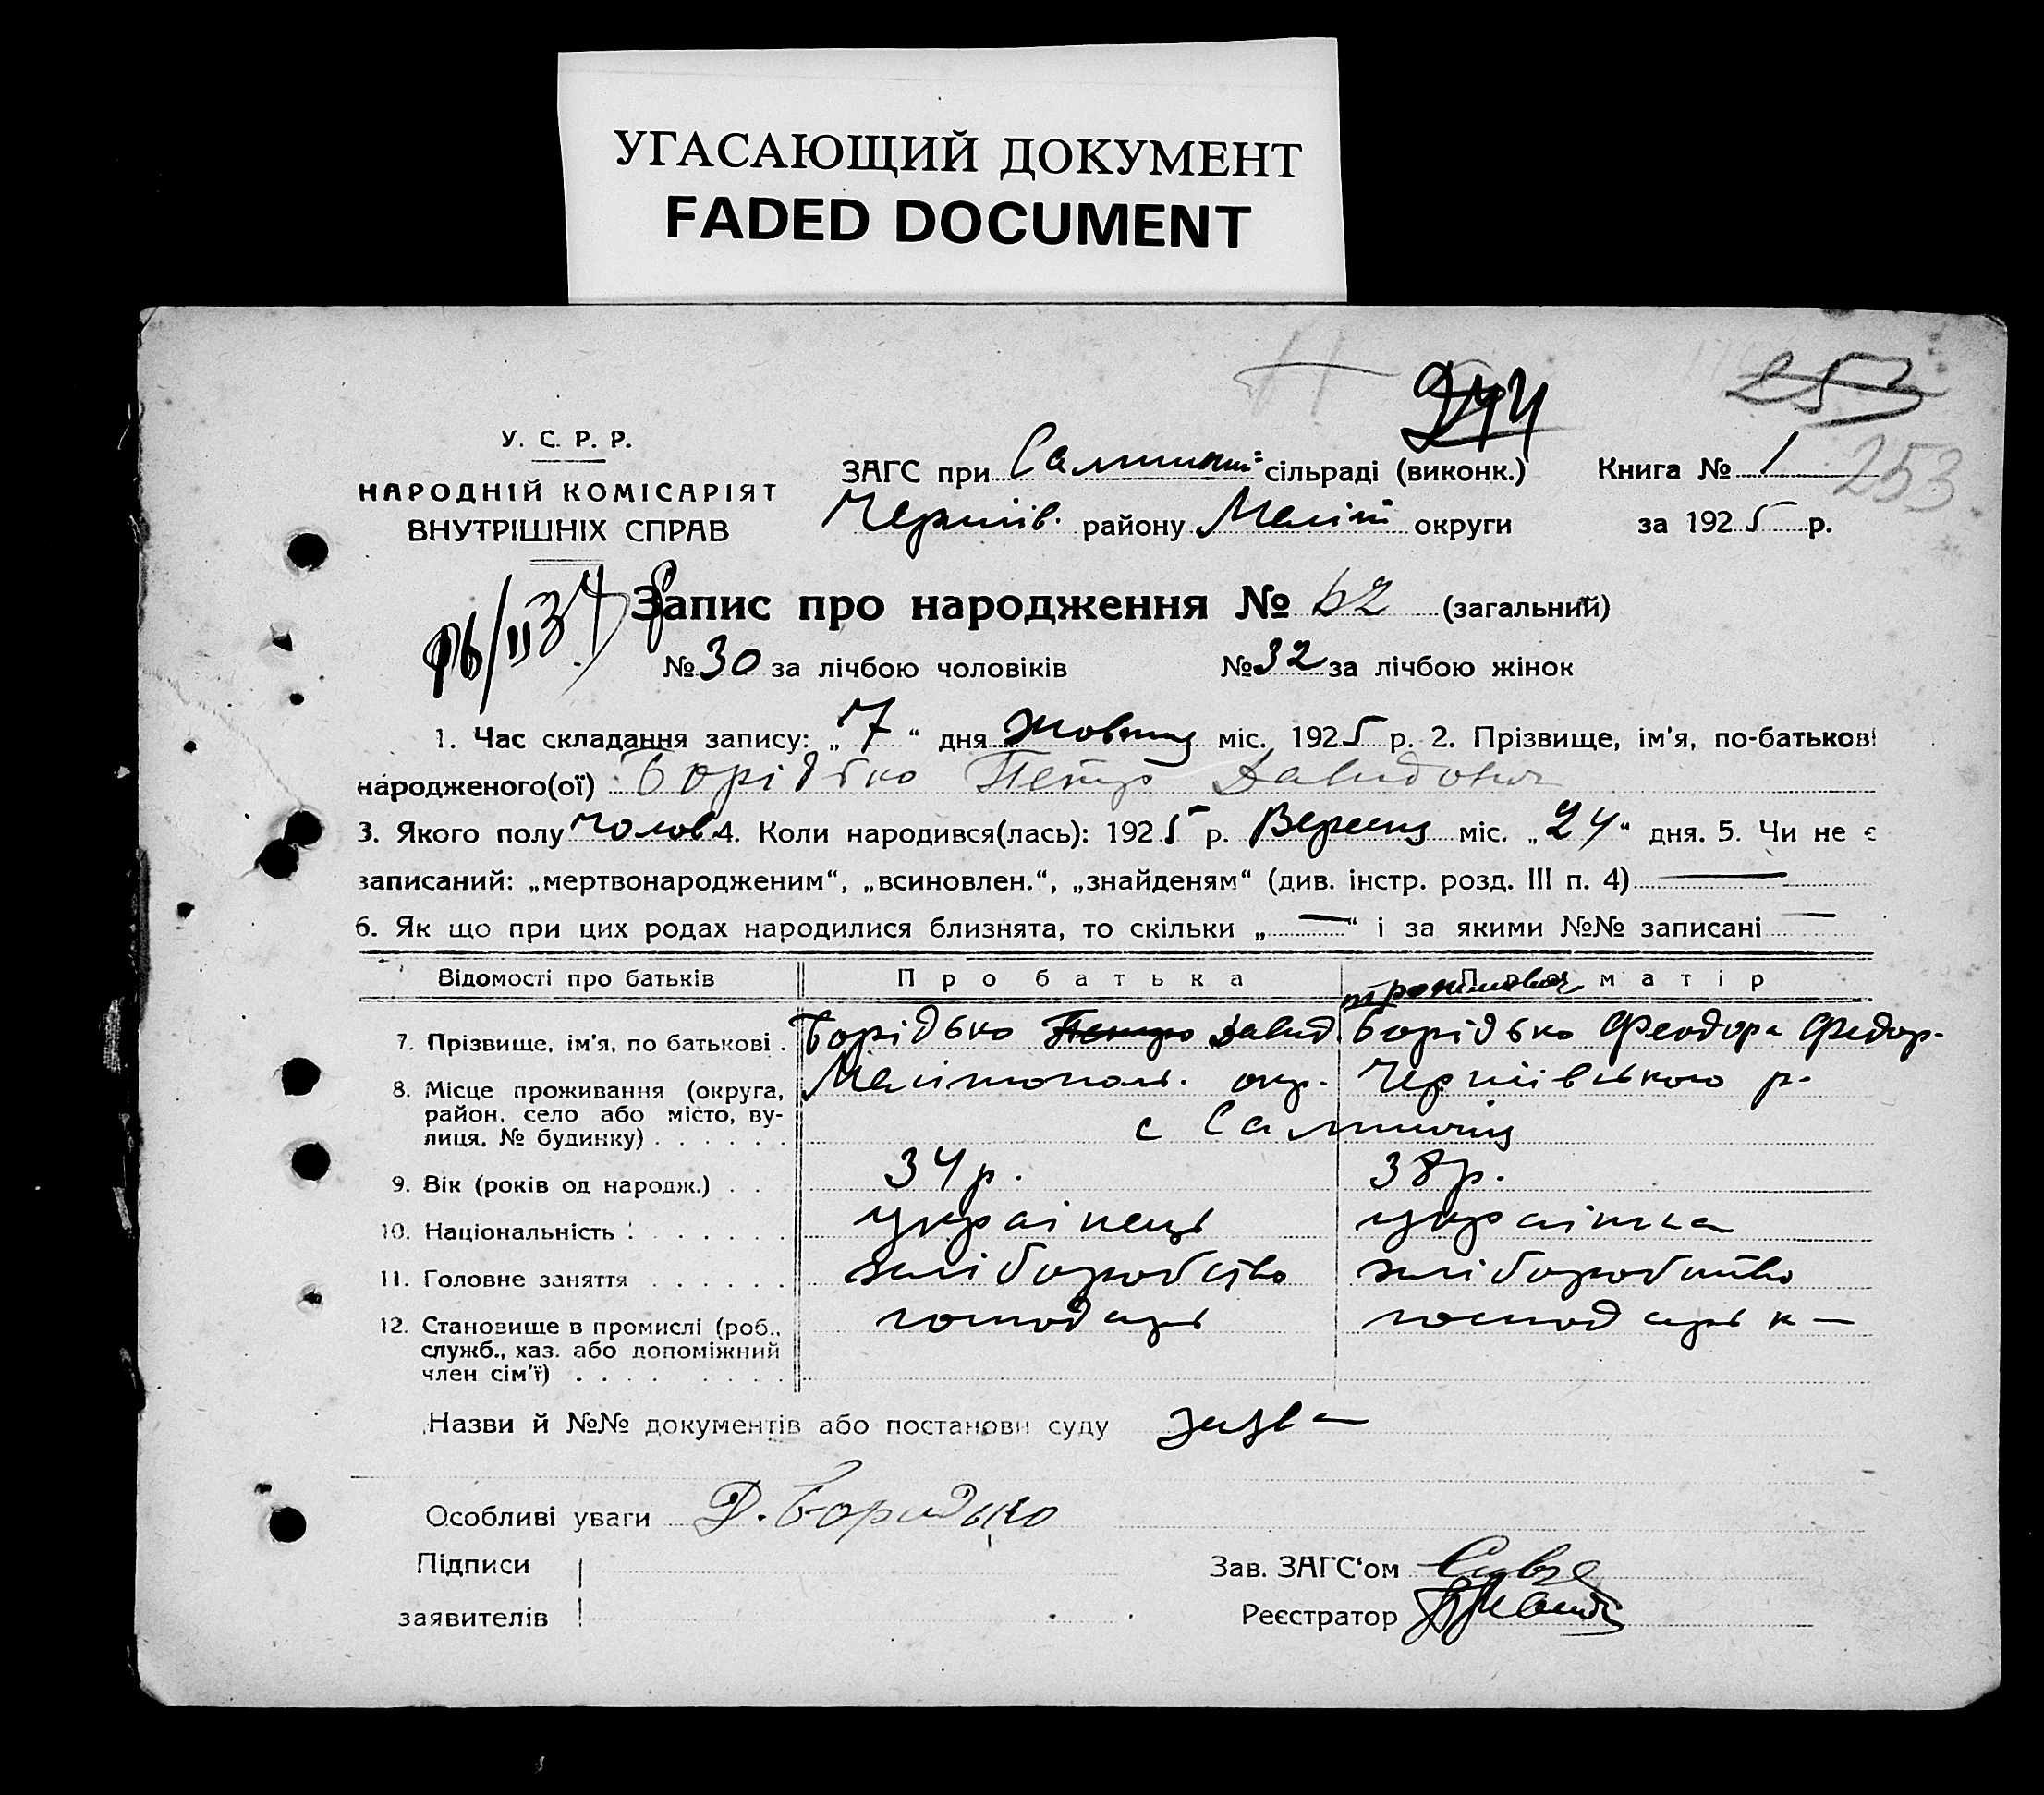 УГАСАЮЩИЙ ДОКУМЕНТ
FADED DOCUMENT
244
253
У. С. Р. Р.
НАРОДНІЙ КОМІСАРІЯТ
ВНУТРІШНІХ СПРАВ
ЗАГС при сільраді (виконк.) Книга № 1
253
Черніїв. району Меліт округи за 1925 р.
Запис про народження № 62 (загальний)
№ 30 за лічбою чоловіків № 32 за лічбою жінок
1. Час складання запису: „7“ дня Жовтня міс. 1925 р. 2. Прізвище, ім'я, по-батькові
народженого(ої) Борідько Петро Давидович
3. Якого полу чолов. 4. Коли народився(лась): 1925 р. Вересня міс. „24“ дня. 5. Чи не є
записаний: „мертвонародженим“, „всиновлен.“, „знайденям“ (див. інстр. розд. III п. 4) —
6. Як що при цих родах народилися близнята, то скільки „—“ і за якими №№ записані —
Відомості про батьків Про батька Про матір
7. Прізвище, ім'я, по батькові . Борідько Петро Давид. Борідько Феодора Федор.
8. Місце проживання (округа, район, село або місто, вулиця, № будинку) Мелітополь. окр. Черніївського р.
с
9. Вік (років од народж.) . . 34 р. 38 р.
10. Національність українець українка
11. Головне заняття хліборобство хліборобство
12. Становище в промислі (роб., господарь господарька
служб., хаз. або допоміжний
член сім'ї)
Назви й №№ документів або постанови суду заява
Особливі уваги Д. Боридько
Підписи Зав. ЗАГС‘ом
заявителів Реєстратор